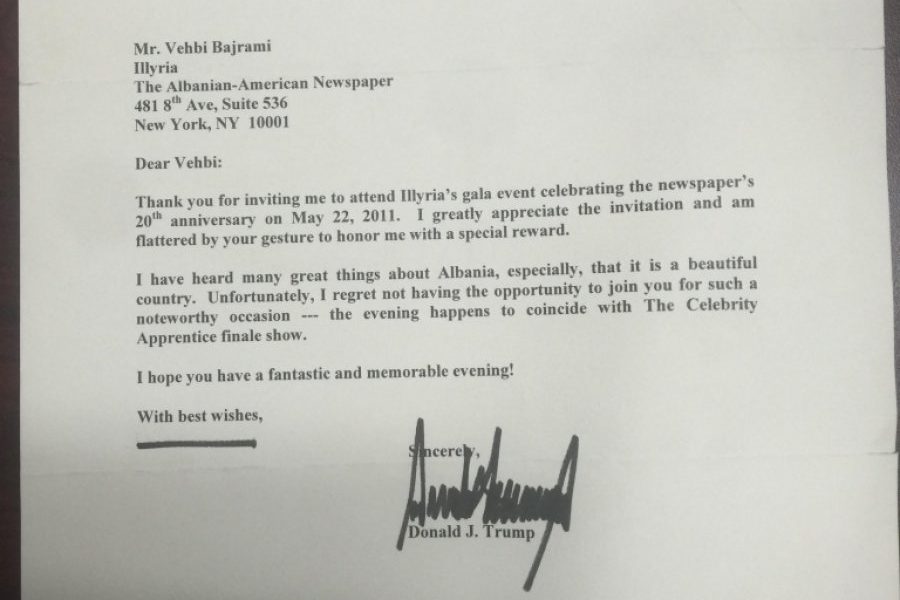 Mr. Vehbi Bajrami
Illyria
The Albanian-American Newspaper
481 8th Ave, Suite 536
New York, NY 10001
Dear Vehbi:
Thank you for inviting me to attend Illyria's gala event celebrating the newspaper's
20th anniversary on May 22, 2011. I greatly appreciate the invitation and am
flattered by your gesture to honor me with a special reward.
I have heard many great things about Albania, especially, that it is a beautiful
country. Unfortunately, I regret not having the opportunity to join you for such a
noteworthy occasion --- the evening happens to coincide with The Celebrity
Apprentice finale show.
I hope you have a fantastic and memorable evening!
With best wishes,
Sincerely,
Donald J. Trump